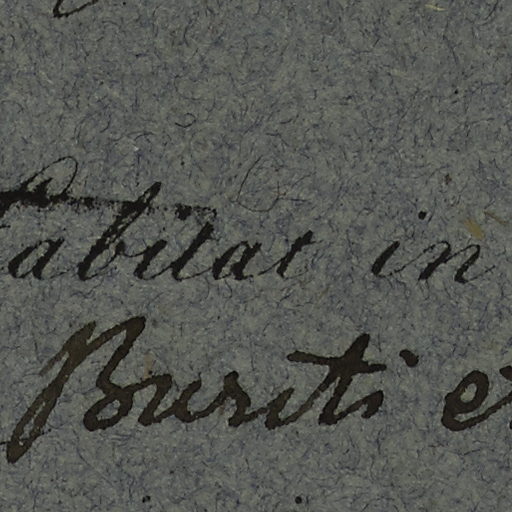 Habitat in
Buriti et